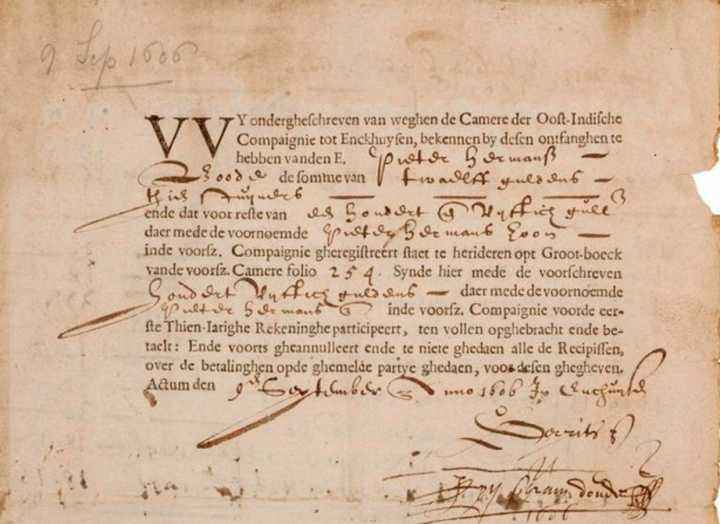 9 Sep 1606
VVY ondergheschreven van weghen de Camere der Oost-Indische
Compaignie tot Enckhuysen, bekennen by desen ontfanghen te
hebben vanden E. Pieter Hermansz
de somme van twaelff guldens
thien stuyvers
ende dat voor reste van een hondert vyftich
daer mede de voornoemde Pieter Hermans zoon
inde voorsz. Compaignie gheregistreert staet te herideren opt Groot-boeck
vande voorsz. Camere folio 254. Synde hier mede de voorschreven
hondert vyftich guldens daer mede de voornoemde
Pieter Hermans inde voorsz. Compaignie voorde eer-
ste Thien-Iarighe Rekeninghe participeert, ten vollen opghebracht ende be-
taelt: Ende voorts gheannulleert ende te niete ghedaen alle de Recipissen,
over de betalinghen opde ghemelde partye ghedaen, voor desen ghegheven.
Actum den 9 September Anno 1606 In
1606